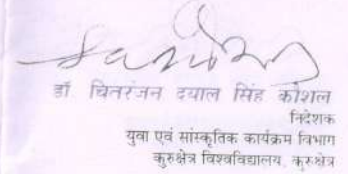 डॉ चितरंजन दयाल सिंह कौशल
निदेशक
युवा एवं सांस्कृतिक कार्यक्रम विभाग
कुरुक्षेत्र विश्वविद्यालय, कुरुक्षेत्र